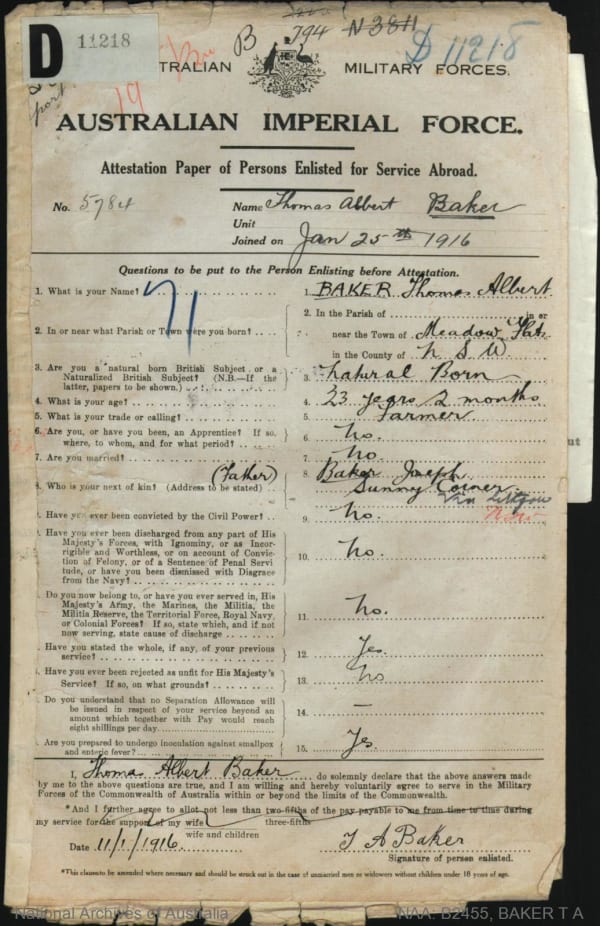 D 11218
B 794 N 3811 D 11218
19
TRALIAN MILITARY FORCES.
AUSTRALIAN IMPERIAL FORCE.
Attestation Paper of Persons Enlisted for Service Abroad.
No. 5784 Name Thomas Albert Baker
Unit
Joined on Jan 25th 1916
Questions to be put to the Person Enlisting before Attestation.
1. What is your Name? 1. BAKER Thomas Albert
71
2. In or near what Parish or Town were you born? 2. In the Parish of in or
near the Town of Meadow Flat
in the County of N S W
3. Are you a natural born British Subject or a
Naturalized British Subject? (N.B.—If the
latter, papers to be shown) 3. Natural Born
4. What is your age? 4. 23 years 2 months
5. What is your trade or calling? 5. Farmer
6. Are you, or have you been, an Apprentice? If so,
where, to whom, and for what period? 6. No.
7. Are you married? 7. No.
(Father) 8. Baker Joseph
8. Who is your next of kin? (Address to be stated) Sunny Corner
Via Lithgow
N.S.W
. Have you ever been convicted by the Civil Power? 9. No.
. Have you ever been discharged from any part of His
Majesty's Forces, with Ignominy, or as Incor-
rigible and Worthless, or on account of Convic-
tion of Felony, or of a Sentence of Penal Servi-
tude, or have you been dismissed with Disgrace
from the Navy? 10. No.
. Do you now belong to, or have you ever served in, His
Majesty's Army, the Marines, the Militia, the
Militia Reserve, the Territorial Force, Royal Navy,
or Colonial Forces? If so, state which, and if not
now serving, state cause of discharge 11. No.
. Have you stated the whole, if any, of your previous
service? 12. Yes
. Have you ever been rejected as unfit for His Majesty's
Service? If so, on what grounds? 13. No
. Do you understand that no Separation Allowance will
be issued in respect of your service beyond an
amount which together with Pay would reach
eight shillings per day 14. —
. Are you prepared to undergo inoculation against smallpox
and enteric fever? 15. Yes.
I, Thomas Albert Baker do solemnly declare that the above answers made
by me to the above questions are true, and I am willing and hereby voluntarily agree to serve in the Military
Forces of the Commonwealth of Australia within or beyond the limits of the Commonwealth.
*And I further agree to allot not less than two-fifths of the pay payable to me from time to time during
three-fifths
my service for the support of my wife
wife and children
Date 11/1/1916. T A Baker
Signature of person enlisted.
*This clause to be amended where necessary and should be struck out in the case of unmarried men or widowers without children under 18 years of age.
National Archives of Australia NAA: B2455, BAKER T A